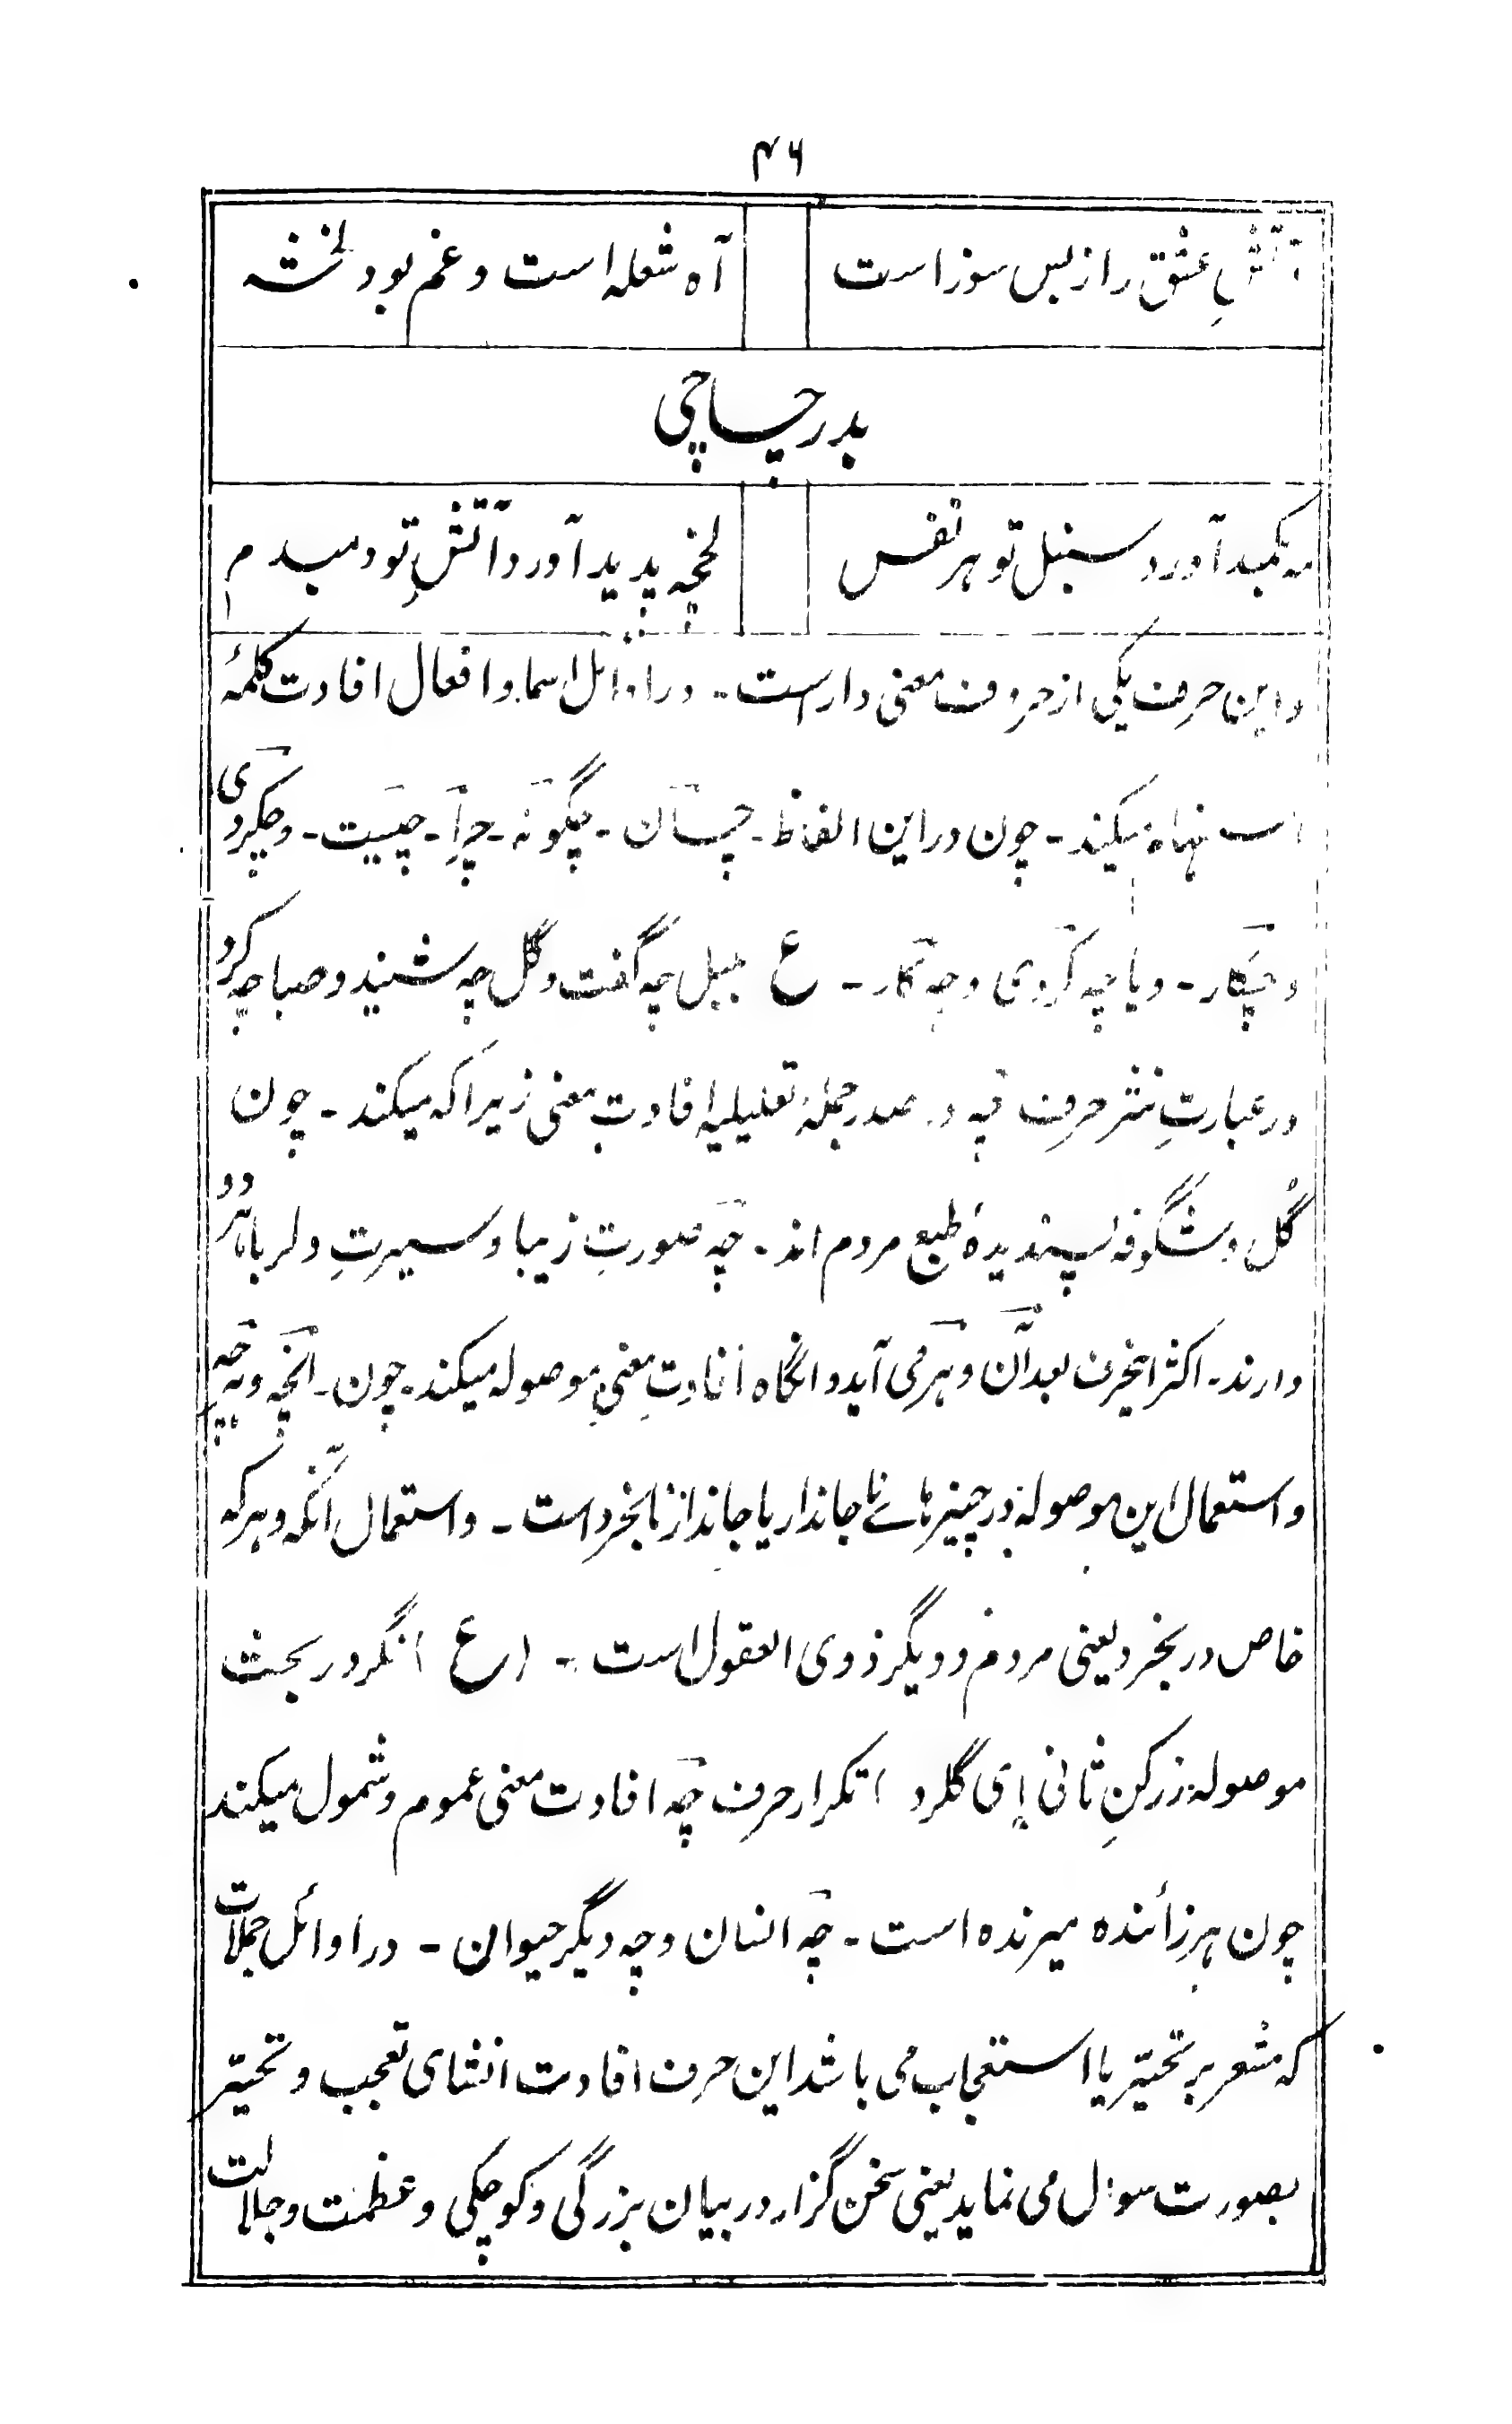 ۴۶
آتشِ عشق را ز بس سوز است آه شعله است و غم بود لخشه
بدر چاچی
بمکید آورد سنبل تو هر نفس لخچه پدید آورد آتشِ تو دمبدم
و این حرف یکی از حروف معنی دار است - در اوائل اسما و افعال افادت کلمهٔ
استفهام میکند - چون در این الفاظ - چسان - چگونه - چرا - چیست - و چکردی
و چکار - و یا چه کردی و چه کار - ع بلبل چه گفت و گل چه شنید و صبا چه کرد
در عبارتِ نثر حرف چه در صدر جملهٔ تعلیلیه افادتِ معنی زیراکه میکند - چون
گل و شگوفه پسندیدهٔ طبع مردم اند - چه صورتِ زیبا و سیرتِ دلربا هر دو
دارند - اکثر اینحرف بعد آن و هر می آید و انگاه افادتِ معنیِ موصوله میکند - چون - انچه و هرچه
و استعمال این موصوله در چیزهائے ناجاندار یا جاندار نابخرد است - و استعمال آنکه و هرکه
خاص در بخرد یعنی مردم و دیگر ذوی العقول است - (رع) انگر در بحث
موصوله زرکنِ ثانی اِی گلرد) تکرار حرف چه افادت معنی عموم و شمول میکند
چون هر زائنده میرنده است - چه انسان و چه دیگر حیوان - در اوائل جملات
که مشعر بر تحیّر یا استعجاب می باشد این حرف افادت انشای تعجب و تحیّر
بصورت سوال می نماید یعنی سخن گزار در بیان بزرگی و کوچکی و عظمت و جلالت